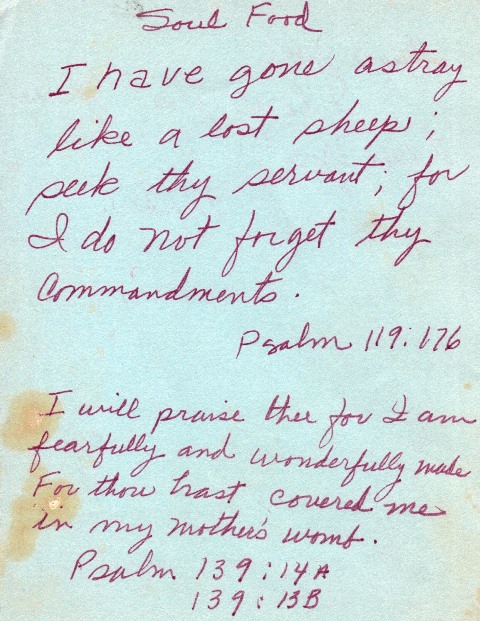 Soul Food
I have gone astray
like a lost sheep;
seek thy servant; for
I do not forget thy
commandments.
Psalm 119:176
I will praise thee for I am
fearfully and wonderfully made
For thou hast covered me
in my mother's womb.
Psalm 139:14A
139:13B